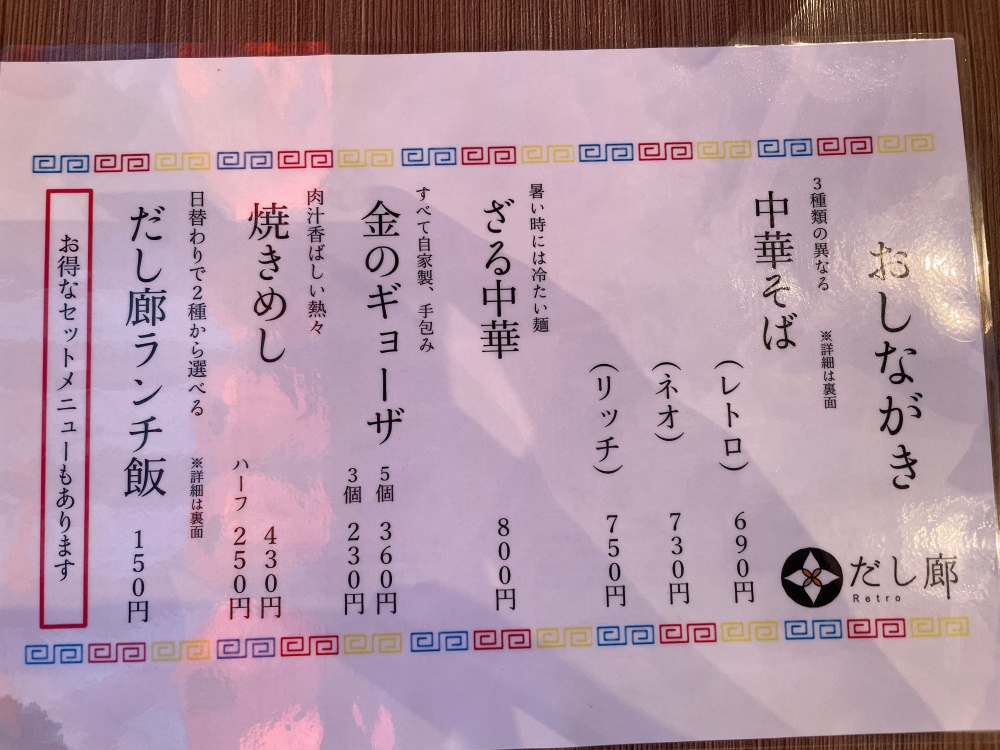 おしながき
だし廊
Retro
3種類の異なる ※詳細は裏面
中華そば
(レトロ) 690円
(ネオ) 730円
(リッチ) 750円
暑い時には冷たい麺
ざる中華 800円
すべて自家製、手包み
金のギョーザ 5個 360円
3個 230円
肉汁香ばしい熱々
焼きめし 430円
ハーフ 250円
日替わりで2種から選べる ※詳細は裏面
だし廊ランチ飯 150円
お得なセットメニューもあります